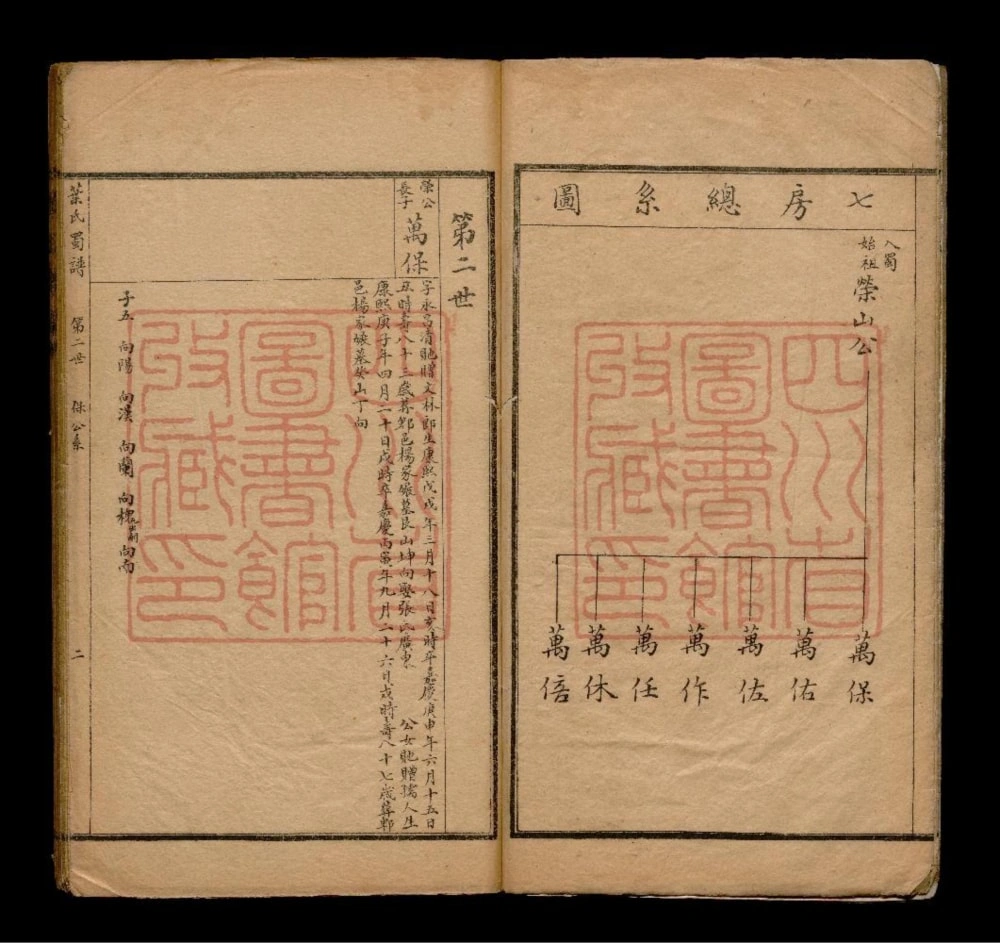 七房總系圖
入蜀
始祖
榮山公
萬保
萬佑
萬佐
萬作
萬任
萬休
萬倍
第二世
榮公
長子
萬保
字永昌清貤贈文林郎生康熙戊戌年三月十八日亥時卒嘉慶庚申年六月十五日
丑時壽八十三歲葬郫邑楊家碾墓艮山坤向娶張氏廣東 公女貤贈孺人生
康熙庚子年四月二十日戌時卒嘉慶丙寅年九月二十六日戌時壽八十七歲葬郫
邑楊家碾墓癸山丁向
子五 向陽 向漢 向蘭 向槐 向南
葉氏蜀譜 第二世 保公系 二
四川省
圖書館
收藏印